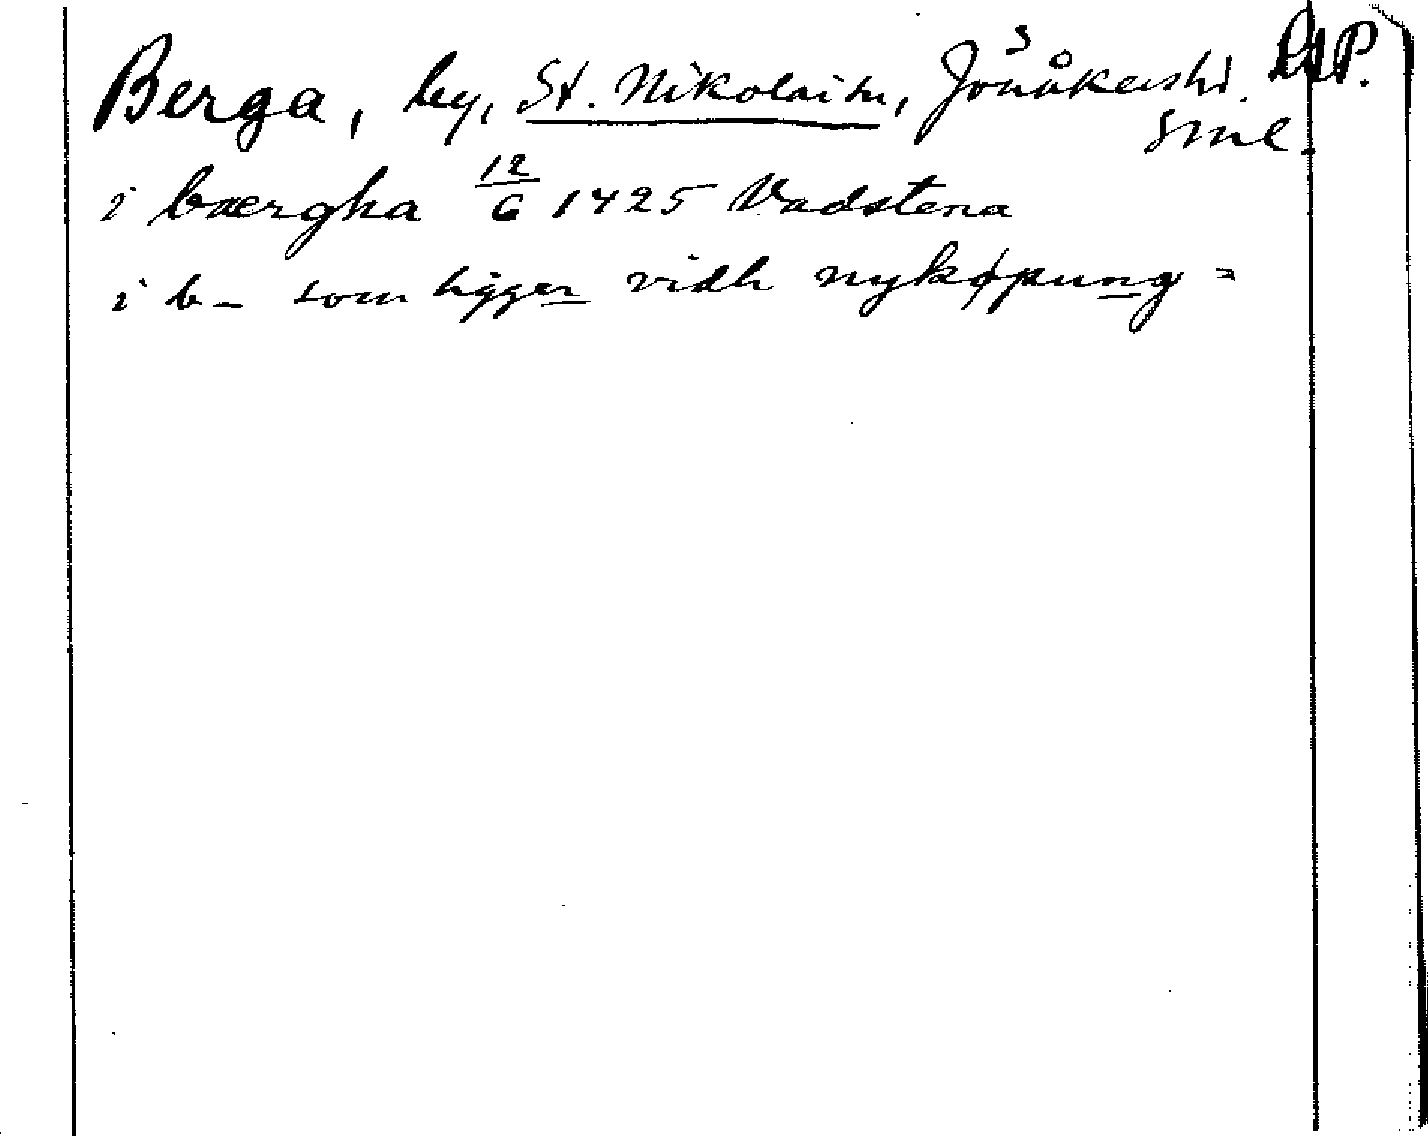 Berga, by, St. Nikolai sn, Jönåkers hd. RAP.
Sml.
i bærgha 12/6 1425 Vadstena
i b– som ligger vidh nykøpung =